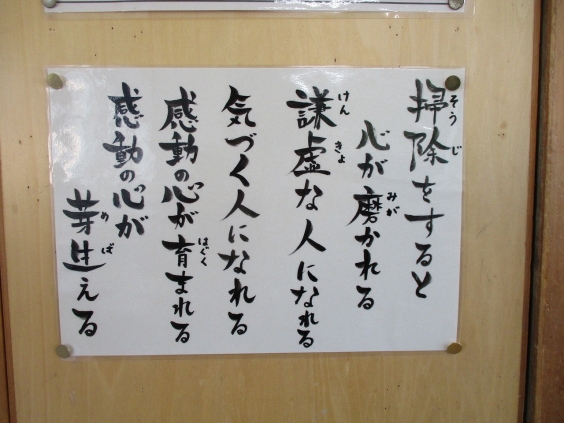 掃除をすると
そうじ
心が磨かれる
みが
謙虚な人になれる
けんきょ
気づく人になれる
感動の心が育まれる
はぐく
感動の心が
芽生える
めば